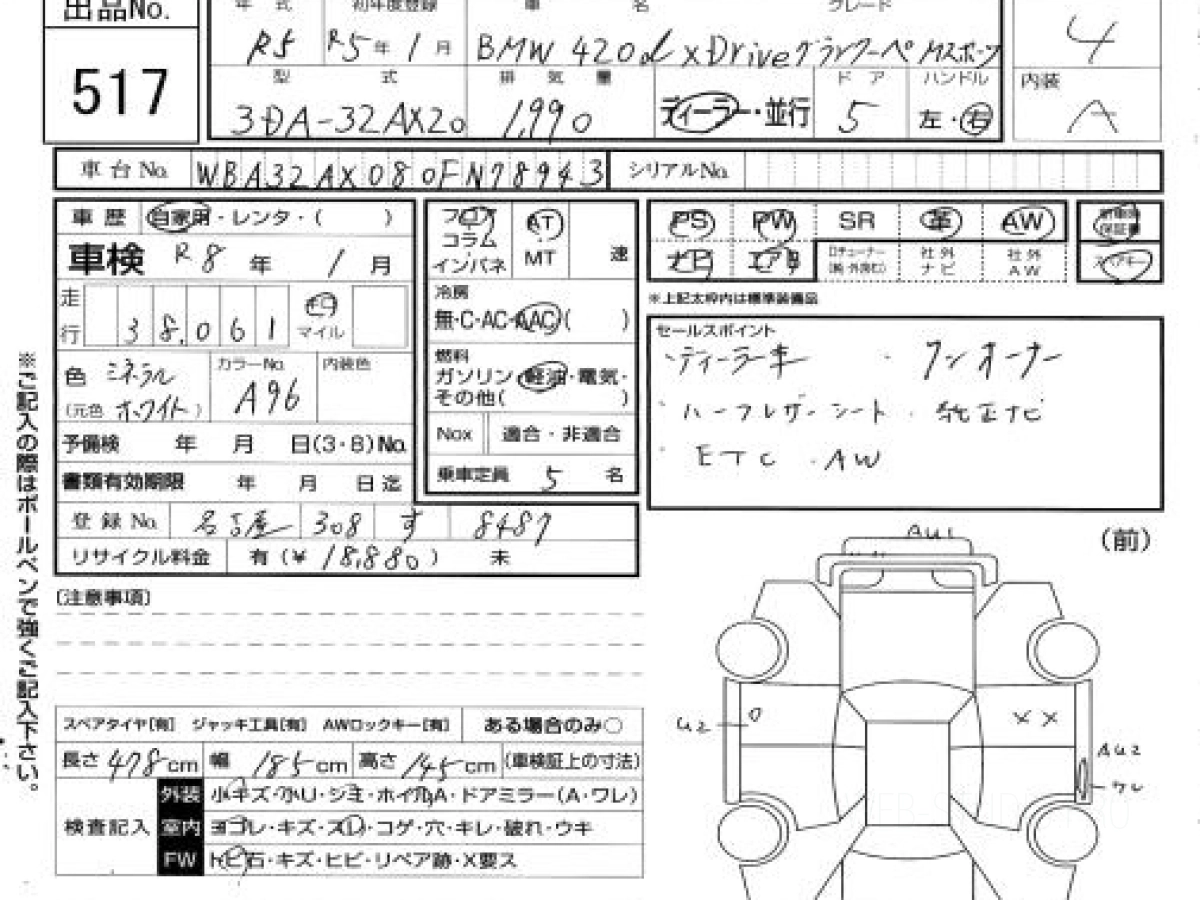 出品No.
517
年 式
初年度登録
車 名
グレード
R5
R5年 1月
BMW 420d xDriveグランクーペ Mスポーツ
4
型 式
排 気 量
ド ア
ハンドル
内装
3DA-32AX20
1,990
ディーラー・並行
5
左・右
A
車台No.
WBA32AX080FN78943
シリアルNo.
車 歴
自家用・レンタ・( )
車検 R8 年 1 月
走行
38,061
マイル
色 ミネラル
(元色 ホワイト)
カラーNo.
A96
内装色
予備検 年 月 日(3・8)No.
書類有効期限 年 月 日迄
登録No. 名古屋 308 す 8487
リサイクル料金 有(¥ 18,880) 未
フロア
コラム
インパネ
AT
MT
速
冷房
無・C・AC・AAC( )
燃料
ガソリン・軽油・電気・
その他( )
Nox 適合・非適合
乗車定員 5 名
PS PW SR 革 AW
ナビ エアB
社外
ナビ
社外
AW
新車時
保証書
スペアキー
※上記太枠内は標準装備品
セールスポイント
・ディーラー車 ・ワンオーナー
・ハーフレザーシート ・純正ナビ
・ETC ・AW
※ご記入の際はボールペンで強くご記入下さい。
(注意事項)
スペアタイヤ[有] ジャッキ工具[有] AWロックキー[有] ある場合のみ○
長さ 478cm 幅 185cm 高さ 145cm (車検証上の寸法)
検査記入
外装 小キズ・小U・シミ・ホイルA・ドアミラー(A・ワレ)
室内 ヨゴレ・キズ・スレ・コゲ・穴・キレ・破れ・ウキ
FW トビ石・キズ・ヒビ・リペア跡・X要ス
AU1
(前)
U2
× ×
AU2
ワレ